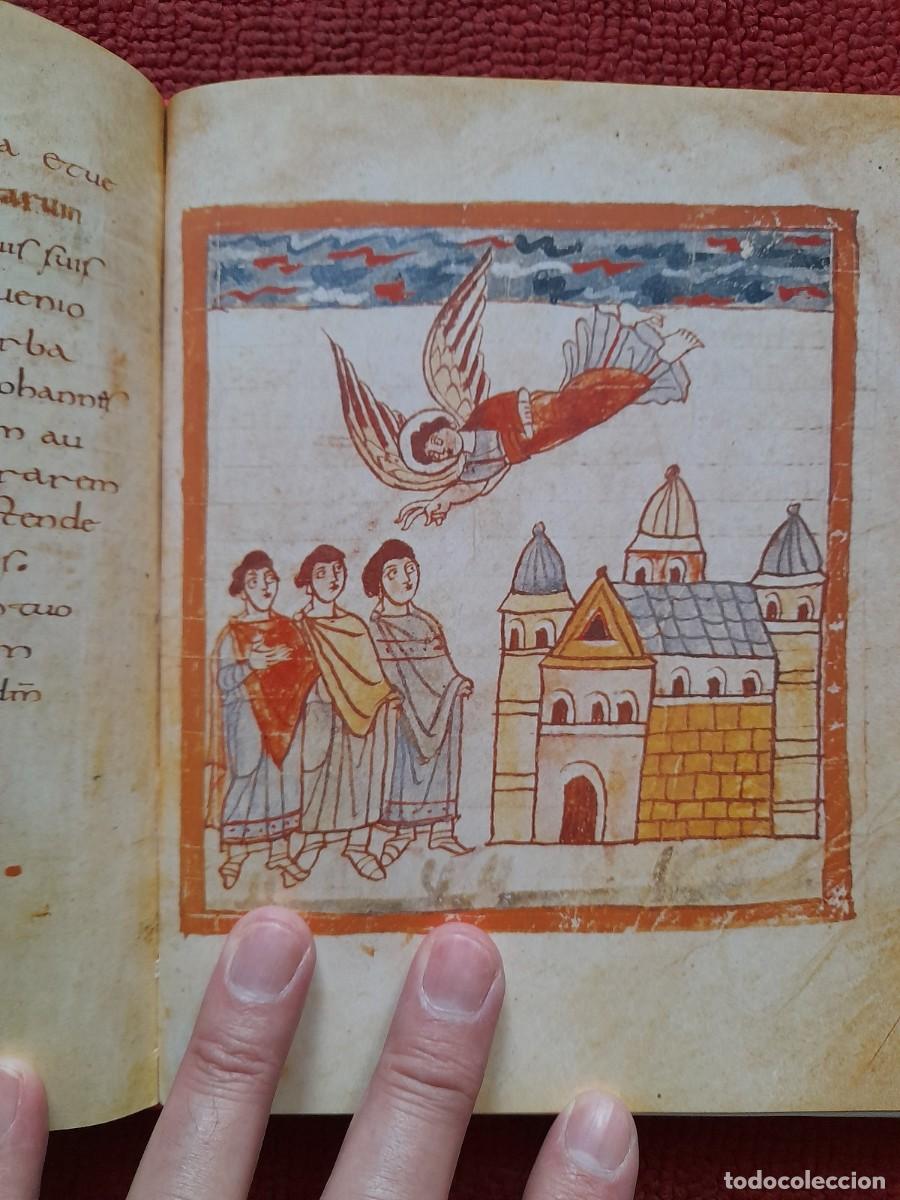 a etue
arum
uis suis
uenio
rba
ohannis
m au
rarem
tende
s.
tuo
m
dm̄
todocoleccion